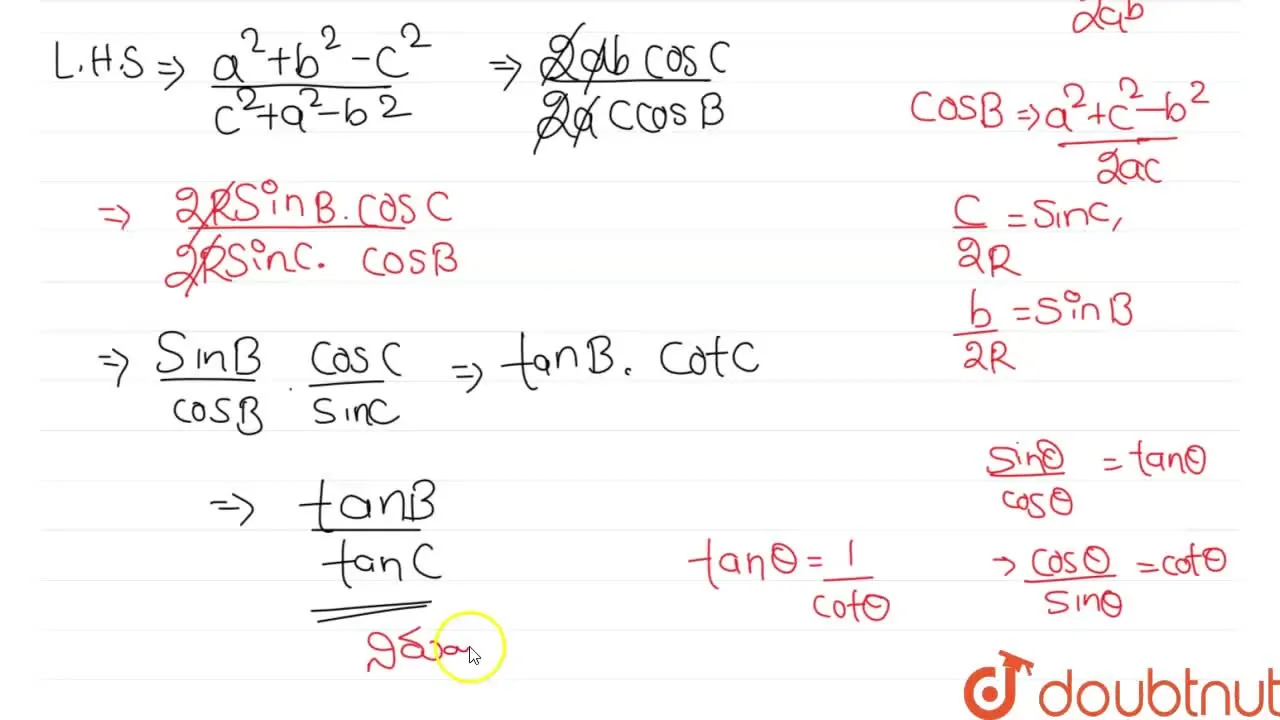 2ab
L.H.S ⇒ a²+b²-c² / c²+a²-b² ⇒ 2ab cos C / 2a c cos B
COSB ⇒ a²+c²-b² / 2ac
⇒ 2R Sin B. cos C / 2R sin C. cos B
C / 2R = Sin C,
b / 2R = Sin B
⇒ Sin B / cos B . Cos C / sin C ⇒ tan B. Cot C
sinθ / cosθ = tanθ
⇒ tan B / tan C
tanθ = 1 / cotθ
→ cosθ / sinθ = cotθ
doubtnut